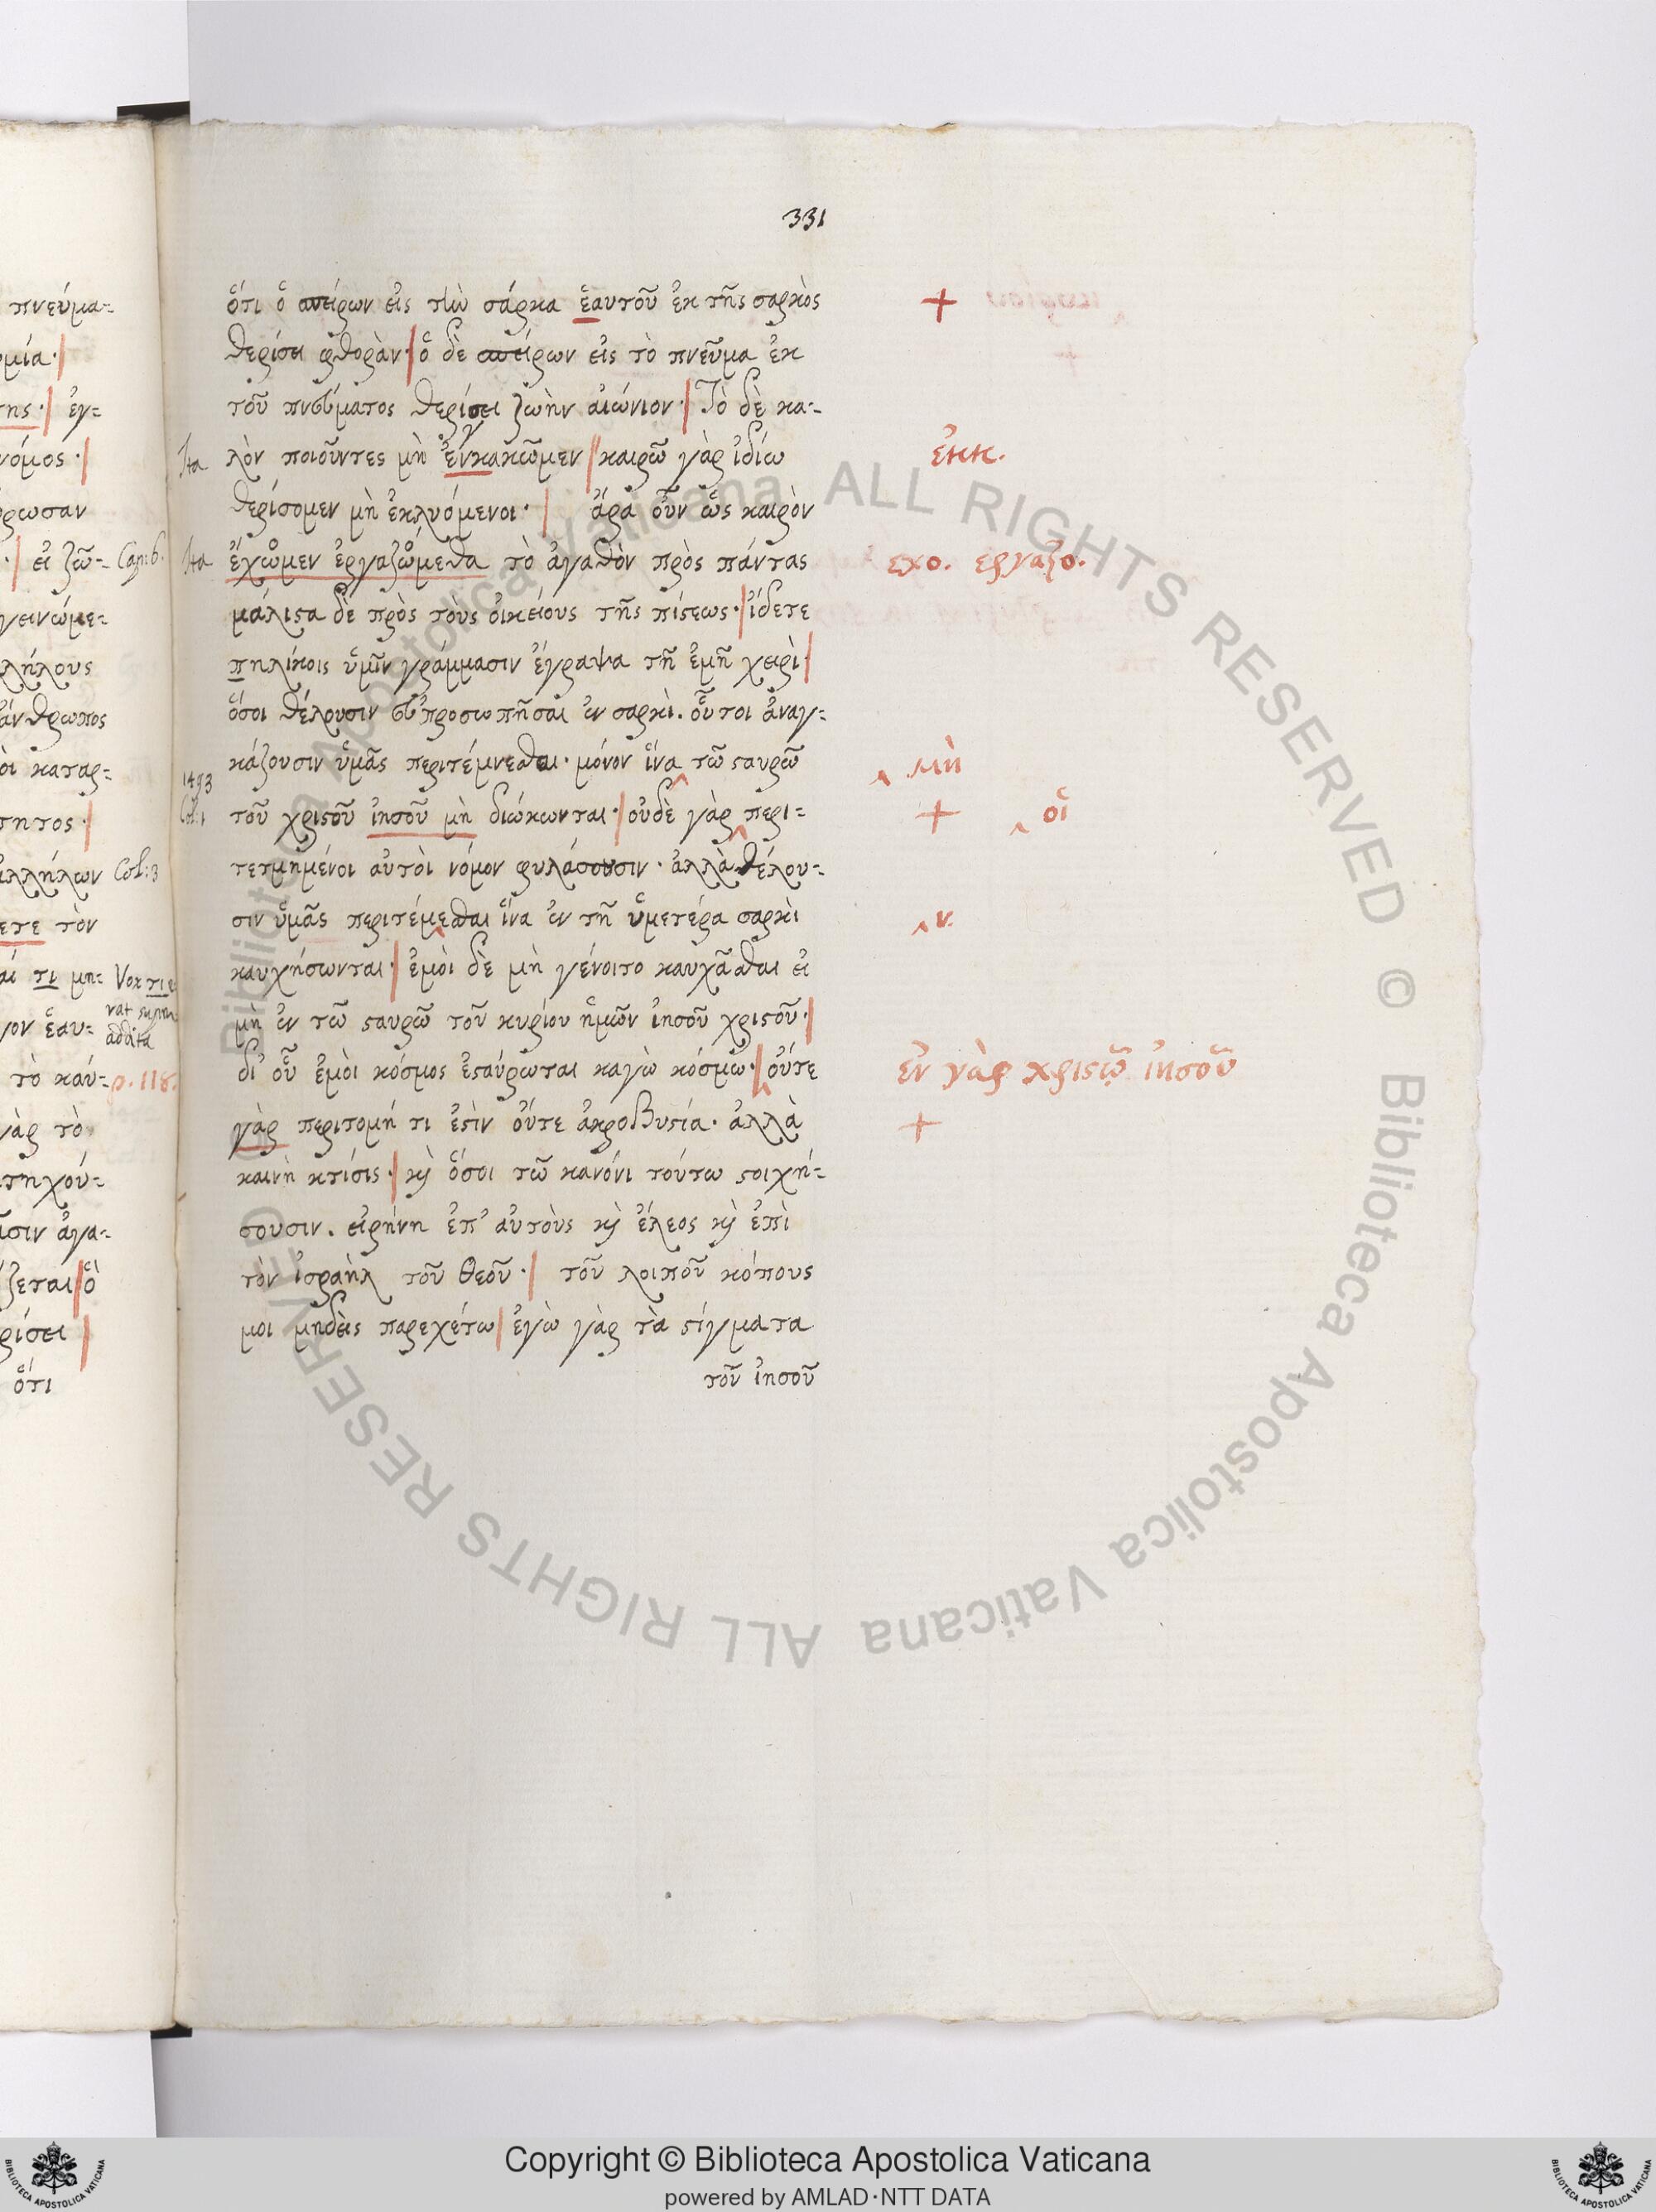 331
ὅτι ὁ σπείρων εἰς τὴν σάρκα ἑαυτοῦ ἐκ τῆς σαρκὸς +
θερίσει φθοράν· ὁ δὲ σπείρων εἰς τὸ πνεῦμα ἐκ
τοῦ πνεύματος θερίσει ζωὴν αἰώνιον· Τὸ δὲ κα-
Ita λὸν ποιοῦντες μὴ ἐνκακῶμεν καιρῶ γὰρ ἰδίω ἐκκ.
θερίσομεν μὴ ἐκλυόμενοι· ἄρα οὖν ὡς καιρὸν
Ita ἔχωμεν ἐργαζώμεθα τὸ ἀγαθὸν πρὸς πάντας εχο. εργαζο.
μάλιστα δὲ πρὸς τοὺς οἰκείους τῆς πίστεως· ἴδετε
πηλίκοις ὑμῖν γράμμασιν ἔγραψα τῇ ἐμῇ χειρὶ·
ὅσοι θέλουσιν εὐπροσωπῆσαι ἐν σαρκὶ. οὗτοι ἀναγ-
κάζουσιν ὑμᾶς περιτέμνεσθαι· μόνον ἵνα τῶ σταυρῶ ‸ μὴ
1493
Col:1 τοῦ χριστοῦ ἰησοῦ μὴ διώκωνται· οὐδὲ γὰρ περι- + ‸ οἱ
τετμημένοι αὐτοὶ νόμον φυλάσσουσιν· ἀλλὰ θέλου-
σιν ὑμᾶς περιτέμεσθαι ἵνα ἐν τῇ ὑμετέρα σαρκὶ ‸ ν.
καυχήσωνται· ἐμοὶ δὲ μὴ γένοιτο καυχᾶσθαι εἰ
μὴ ἐν τῶ σταυρῶ τοῦ κυρίου ἡμῶν ἰησοῦ χριστοῦ·
δι' οὗ ἐμοὶ κόσμος ἐσταύρωται καγὼ κόσμω· οὔτε ἐν γὰρ χριστῷ ἰησοῦ
γὰρ περιτομή τι ἐστὶν οὔτε ἀκροβυστία· ἀλλὰ +
καινὴ κτίσις· κὶ ὅσοι τῶ κανόνι τούτω στοιχή-
σουσιν. εἰρήνη ἐπ' αὐτοὺς κὶ ἔλεος κὶ ἐπὶ
τὸν ἰσραὴλ τοῦ θεοῦ· τοῦ λοιποῦ κόπους
μοι μηδεὶς παρεχέτω ἐγὼ γὰρ τὰ στίγματα
τοῦ ἰησοῦ
πνεύμα-
ἐγ-
νόμος·
εἰ ζῶ- Cap: 6.
ἄνθρωπος
Col: 3
τὸν
τι μη- Vox τι
addita
τὸ καύ- p. 118.
γὰρ τὸ
ὁ
ὅτι
Copyright © Biblioteca Apostolica Vaticana
powered by AMLAD·NTT DATA
Biblioteca Apostolica Vaticana ALL RIGHTS RESERVED © Biblioteca Apostolica Vaticana ALL RIGHTS RESERVED ©
BIBLIOTECA APOSTOLICA VATICANA
BIBLIOTECA APOSTOLICA VATICANA